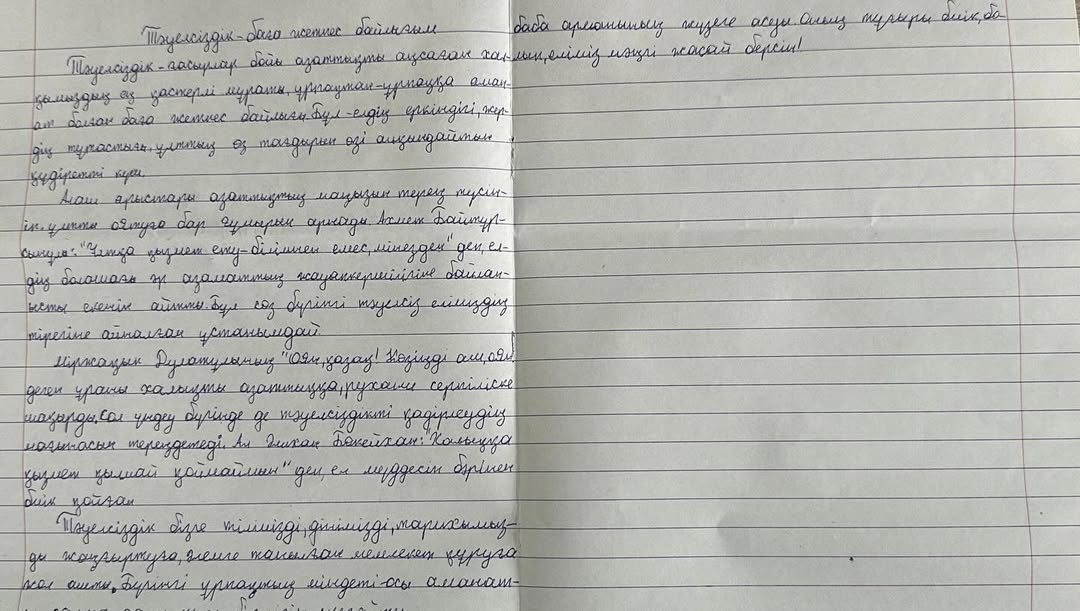 Тәуелсіздік-баға жетпес байлығым
Тәуелсіздік-ғасырлар бойы азаттықты аңсаған хал-
қымыздың ең қастерлі мұраты, ұрпақтан-ұрпаққа аман-
ат болған баға жетпес байлығы. Бұл-елдің еркіндігі, жер-
дің тұтастығы, ұлттың өз тағдырын өзі айқындайтын
құдіретті күш.
Алаш арыстары азаттықтың маңызын терең түсін-
іп, ұлтты оятуға бар ғұмырын арнады. Ахмет Байтұр-
сынұлы: "Ұлтқа қызмет ету-білімнен емес, мінезден" деп, ел-
дің болашағы әр азаматтың жауапкершілігіне байлан-
ысты екенін айтты. Бұл сөз бүгінгі тәуелсіз еліміздің
тірегіне айналған ұстанымдай.
Міржақып Дулатұлының "Оян, қазақ! Көзіңді аш, оян"
деген ұраны халықты азаттыққа, рухани серпіліске
шақырды. Сол үндеу бүгінде де тәуелсіздікті қадірлеудің
мағынасын тереңдетеді. Ал Әлихан Бөкейхан: "Халыққа
қызмет қылмай қоймаймын" деп, ел мүддесін бәрінен
биік қойған
Тәуелсіздік бізге тілімізді, дінімізді, тарихымыз-
ды жаңғыртуға, әлемге танылған мемлекет құруға
жол ашты. Бүгінгі ұрпақтың міндеті-осы аманат-
баба арманының жүзеге асуы. Оның тұғыры биік, ба-
лың, еліміз мәңгі жасай берсін!